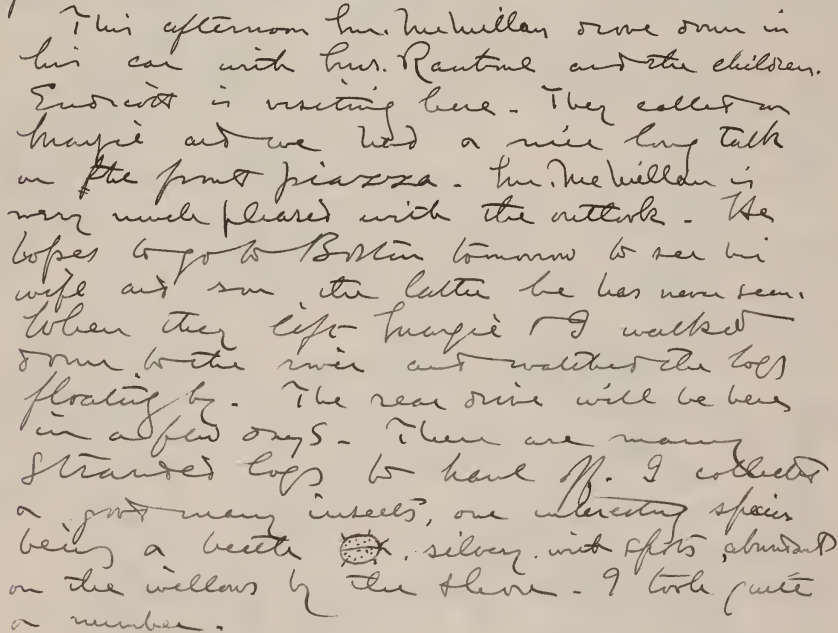 This afternoon Mr. McMillan drove down in
his car with Mrs. Rantoul and the children.
Endicott is visiting here. They called on
Margie and we had a nice long talk
on the front piazza. Mr. McMillan is
very much pleased with the outlook. He
hopes to go to Boston tomorrow to see his
wife and son, the latter he has never seen.
When they left Margie & I walked
down to the river and watched the logs
floating by. The rear drive will be here
in a few days. There are many
stranded logs to haul off. I collected
a good many insects, one interesting species
being a beetle, silvery with spots, abundant
on the willows by the shore. I took quite
a number.